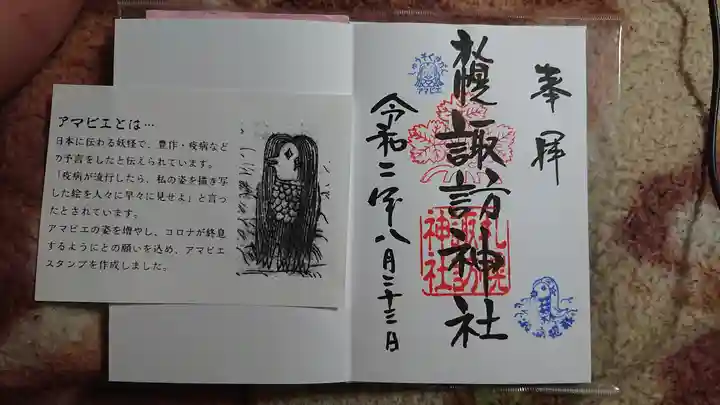 アマビエとは…
日本に伝わる妖怪で、豊作・疫病など
の予言をしたと伝えられています。
「疫病が流行したら、私の姿を描き写
した絵を人々に早々に見せよ」と言っ
たとされています。
アマビエの姿を増やし、コロナが終息
するようにとの願いを込め、アマビエ
スタンプを作成しました。
奉拝
札幌諏訪神社
令和二年八月二十三日
札幌
諏訪
神社
アマビエ